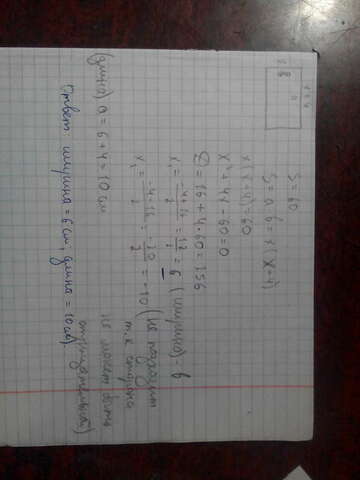 S = 60
x + 4
a
x
в
S = a · в = x · (x + 4)
x(x+4) = 60
x² + 4x - 60 = 0
D = 16 + 4·60 = 256
x₁ = -4+16/2 = 12/2 = 6 (ширина) - в
x₁ = -4-16/2 = -20/2 = -10 (не подходит
т.к сторона
не может быть
отрицательной)
(длина) a = 6 + 4 = 10 см
Ответ: ширина = 6 см, длина = 10 см.